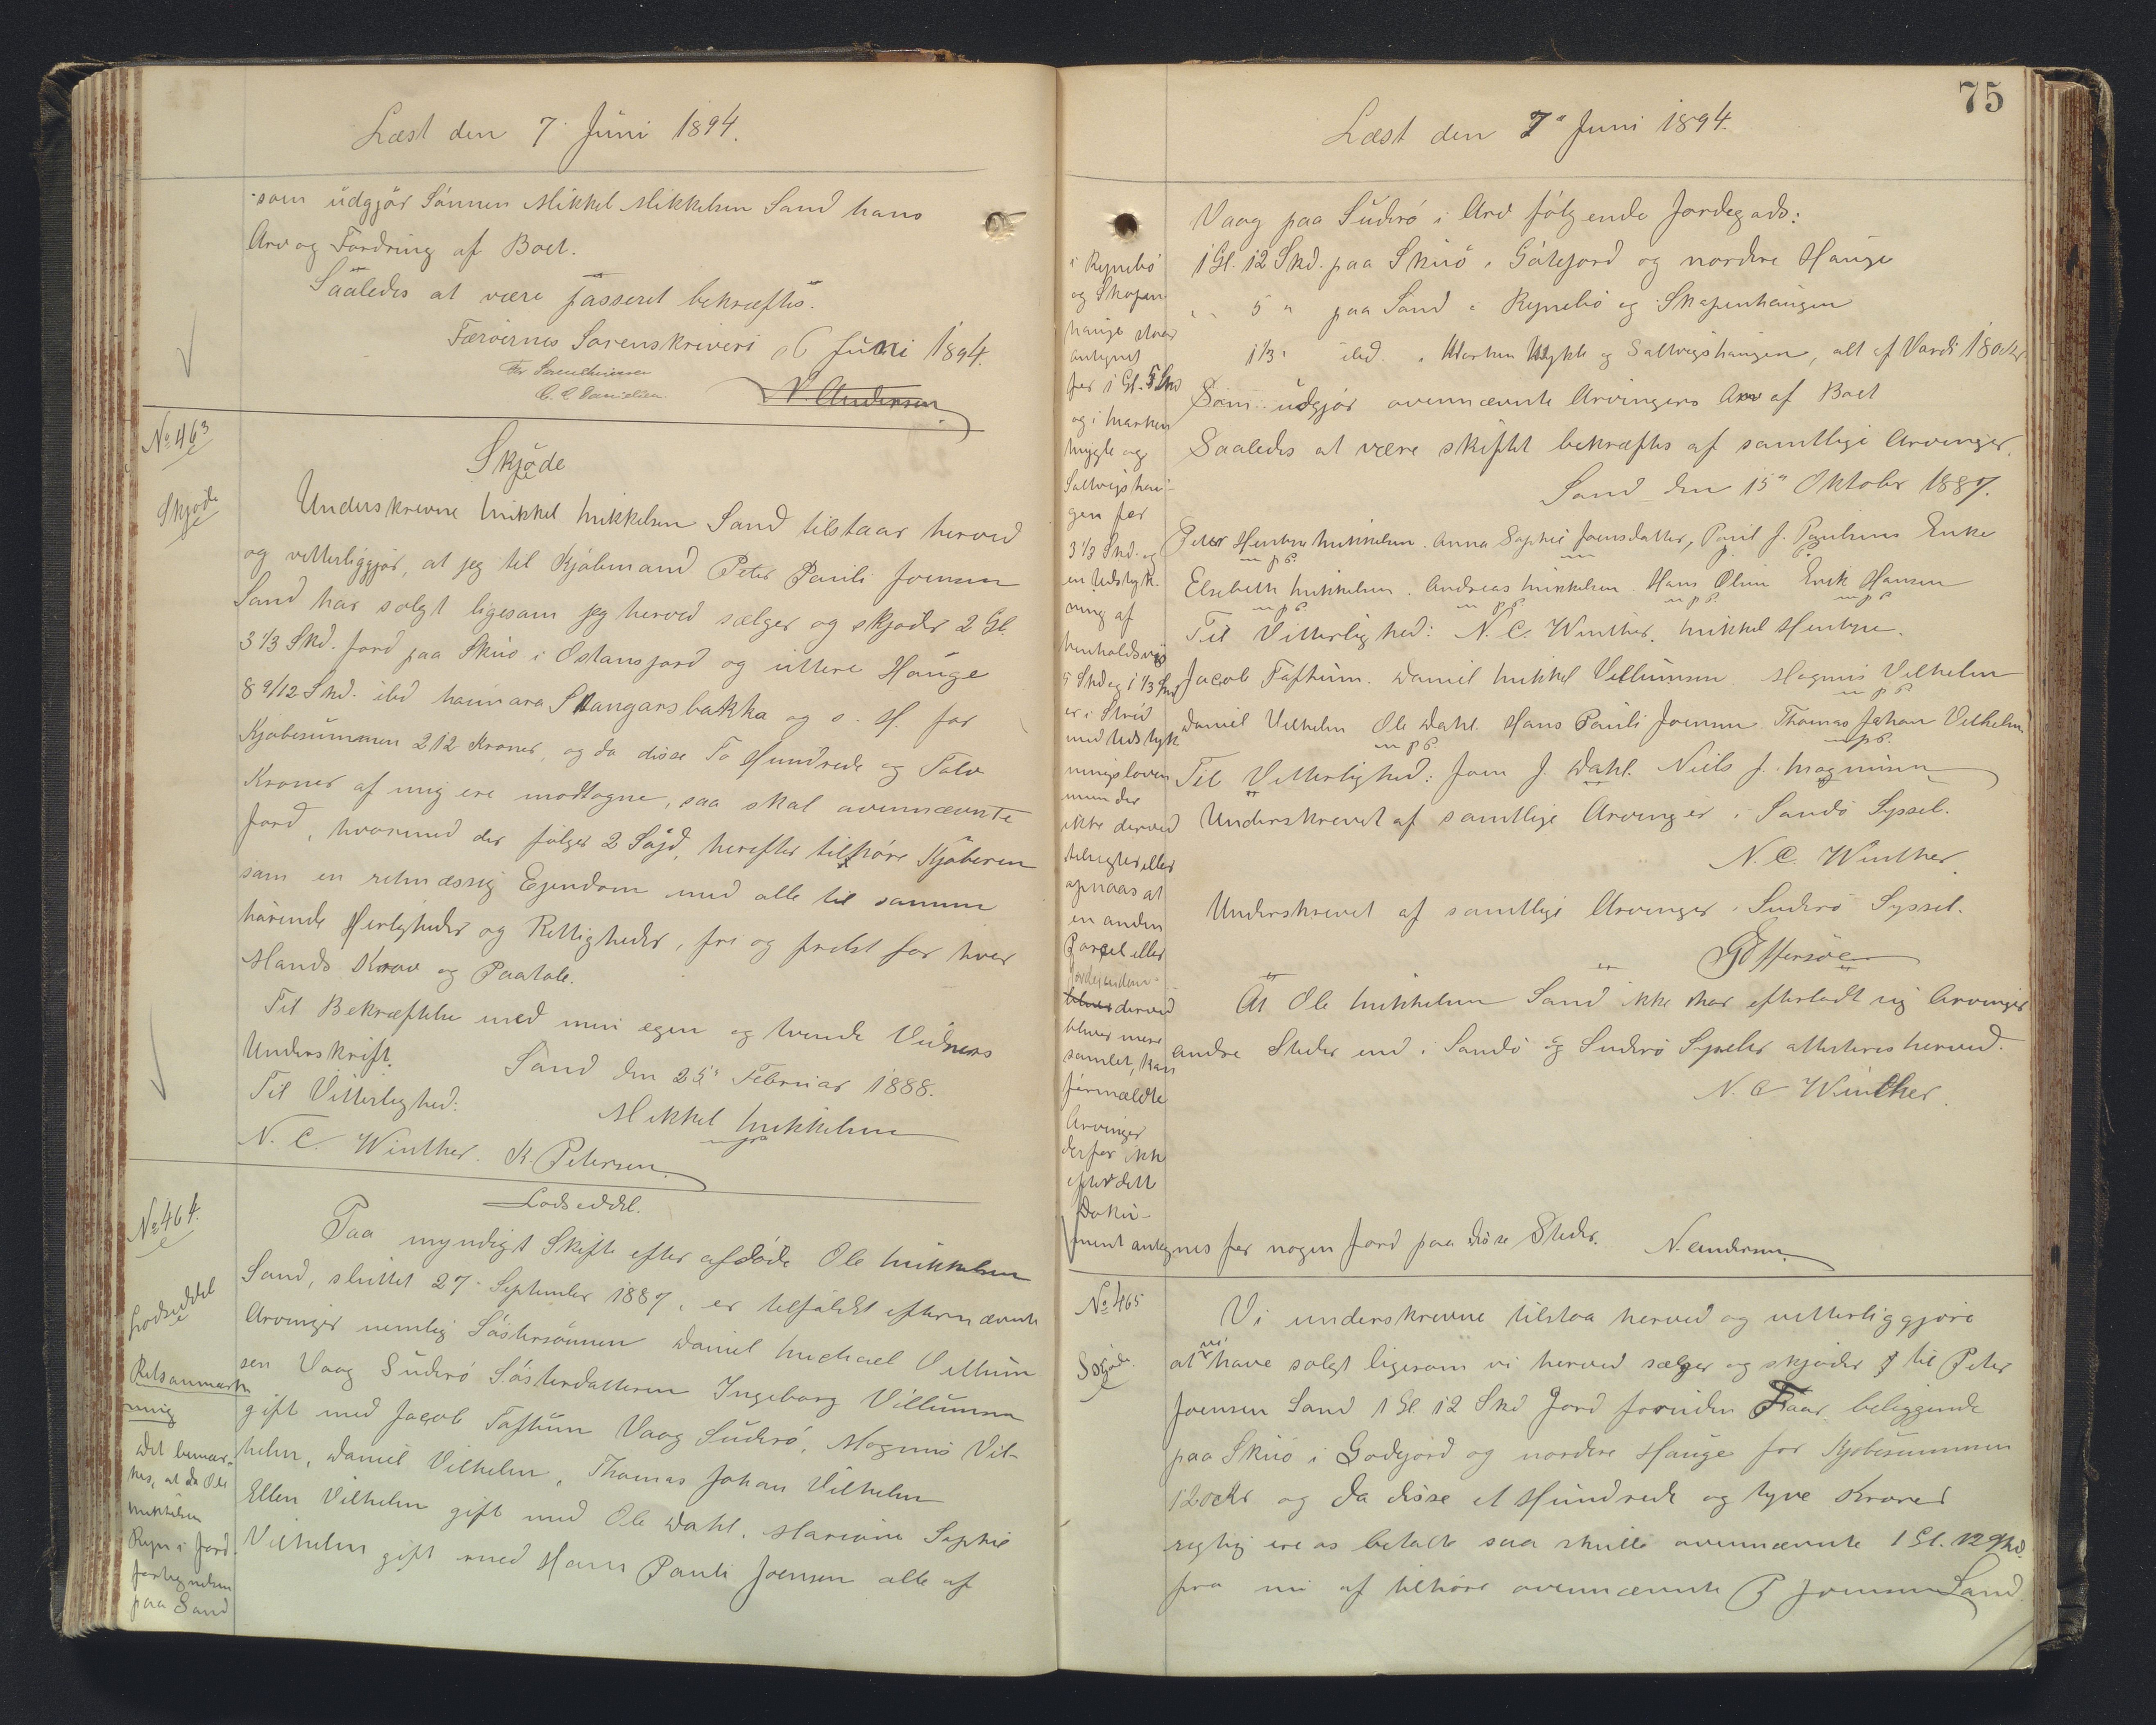 Læst den 7. Juni 1894.
som udgjör Sönnen Mikkel Mikkelsen Sand hans
Arv og Fordring af Boet.
Saaledes at være passeret bekræftes.
Færöernes Sorenskriveri d 6 Juni 1894.
For Sorenskriveren
C. C. Danielsen
N. Andersen
No 463
Skjöde
Skjöde
Underskrevne Mikkel Mikkelsen Sand tilstaar herved
og vitterliggjör, at jeg til Kjöbmand Peter Pauli Joensen
Sand har solgt ligesom jeg herved sælger og skjöder 2 Gl.
3 1/3 Skd. Jord paa Skuö i Ostansjord og uttere Hauge
8 9/12 Skd. ibd haunara Stangarsbakka og s. H. for
Kjöbesummen 212 Kroner, og da disse To Hundrede og Tolv
Kroner af mig ere modtagne, saa skal ovennævnte
Jord, hvormed der fölger 2 Söjd, herefter tilhöre Kjöberen
som en retmæssig Ejendom med alle til samme
hörende Herligheder og Rettigheder, fri og frelst for hver
Mands Krav og Paatale.
Til Bekræftelse med min egen og tvende Vidners
Underskrift.
Sand den 25" Februar 1888.
Til Vitterlighed:
Mikkel Mikkelsen
N. C. Winther. K. Petersen
No 464.
Lodseddel
Lodseddel.
Paa myndigt Skifte efter afdöde Ole Mikkelsen
Sand, sluttet 27. September 1887, er tilfaldet efternævnte
Arvinger nemlig Söstersönnen Daniel Michael Villum
sen Vaag Suderö Sösterdatteren Ingeborg Villumsen
gift med Jacob Taftum Vaag Suderö, Mogmus Vil-
helm, Daniel Vilhelm, Thomas Johan Vilhelm
Ellen Vilhelm gift med Ole Dahl. Mariane Sophie
Vilhelm gift med Hans Pauli Joensen alle af
Retsanmærk
ning
Det bemær-
kes, at da Ole
Mikkelsen
Ryn i Jord
fortegnelsen
paa Sand
75
Læst den 7" Juni 1894.
Vaag paa Suderö i Arv fölgende Jordegods:
1 Gl. 12 Skd. paa Skuö i Götejord og nordre Hauge
" " 5 " paa Sand i Rynebö og Skopenhaugen
1 1/3 " ibd. i Marken Mykle og Saltvigshaugen, alt af Værdi 180 Kr
Som udgjör ovennævnte Arvingers Arv af Boet
Saaledes at være skiftet bekræftes af samtlige Arvinger.
Sand den 15" Oktober 1887.
Peter Hentze Mikkelsen. Anna Sophie Joensdatter, Poul J. Paulsens Enke
m p s.
Elsebeth Mikkelsen. Andreas Mikkelsen Hans Olsen Erik Hansen
m p s. m p s. m p s. m p s
Til Vitterlighed: N. C. Winther. Mikkel Hentze.
Jacob Taftum. Daniel Mikkel Villumsen Mogmus Vilhelm
m p s
Daniel Vilhelm Ole Dahl. Hans Pauli Joensen Thomas Johan Vilhelm
m p s mps.
Til Vitterlighed: Joen J. Dahl. Niels J. Mogmusen
Underskrevet af samtlige Arvinger i Sandö Syssel.
N. C. Winther.
Underskrevet af samtlige Arvinger i Suderö Syssel.
G Effersöe
At Ole Mikkelsen Sand ikke har efterladt sig Arvinger
andre Steder end i Sandö og Suderö Sysseler attesteres herved.
N. C Winther.
i Rynebö
og Skopen
hauge staar
antegnet
for 1 Gl. 5 Skd
og i Marken
Mygle og
Saltvigshau-
gen for
3 1/3 Skd. og
en Udstyk-
ning af
henholdsvis
5 Skd og 1 1/3 Skd
er i Strid
med Udstyk
ningsloven
men der
ikke derved
tilsigtes eller
opnaas at
en anden
Parcel eller
Jordejendom
bliver derved
bliver mere
samlet, kan
förmeldte
Arvinger
derfor ikke
efter dette
Doku-
ment antegnes for nogen Jord paa disse Steder. N. Andersen
No 465
Skjöde.
Vi underskrevne tilstaa herved og vitterliggjöre
at vi have solgt ligesom vi herved sælger og skjöder til Peter
Joensen Sand 1 Gl 12 Skd Jord foruden Faar beliggende
paa Skuö i Godejord og nordre Hauge for Kjöbesummen
120 Kr og da disse et Hundrede og tyve Kroner
rigtig ere os betalte saa skulle ovennævnte 1 Gl. 12 Skd.
fra nu af tilhöre ovennævnte P Joensen Sand